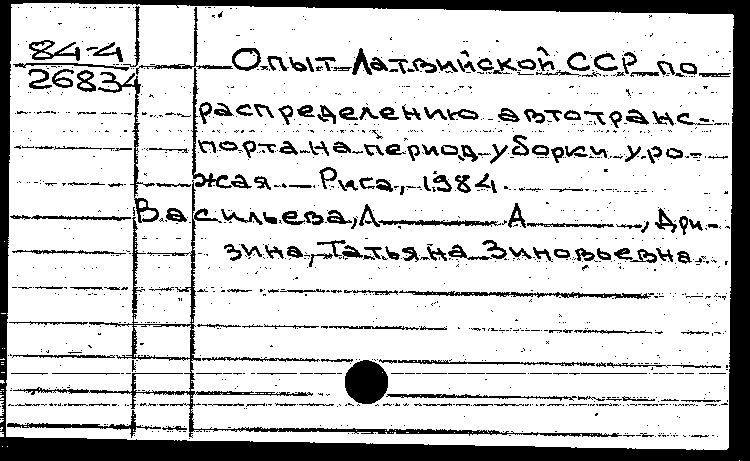 84-4
26834
Опыт Латвийской ССР по
распределению автотранс-
порта на период уборки уро-
жая. Рига, 1984.
Васильева, Л А , Дри-
зина, Татьяна Зиновьевна